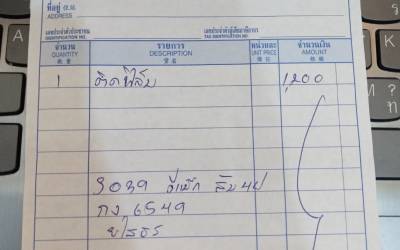 ที่อยู่
ADDRESS
เลขประจำตัวประชาชน
IDENTIFICATION NO.
เลขประจำตัวผู้เสียภาษีอากร
TAX IDENTIFICATION NO.
จำนวน รายการ หน่วยละ จำนวนเงิน
QUANTITY DESCRIPTION UNIT PRICE AMOUNT
数量 價 金額
1 ติดฟิล์ม 1,200
3039 ดีแม็ก
กง 6549
ยโสธร